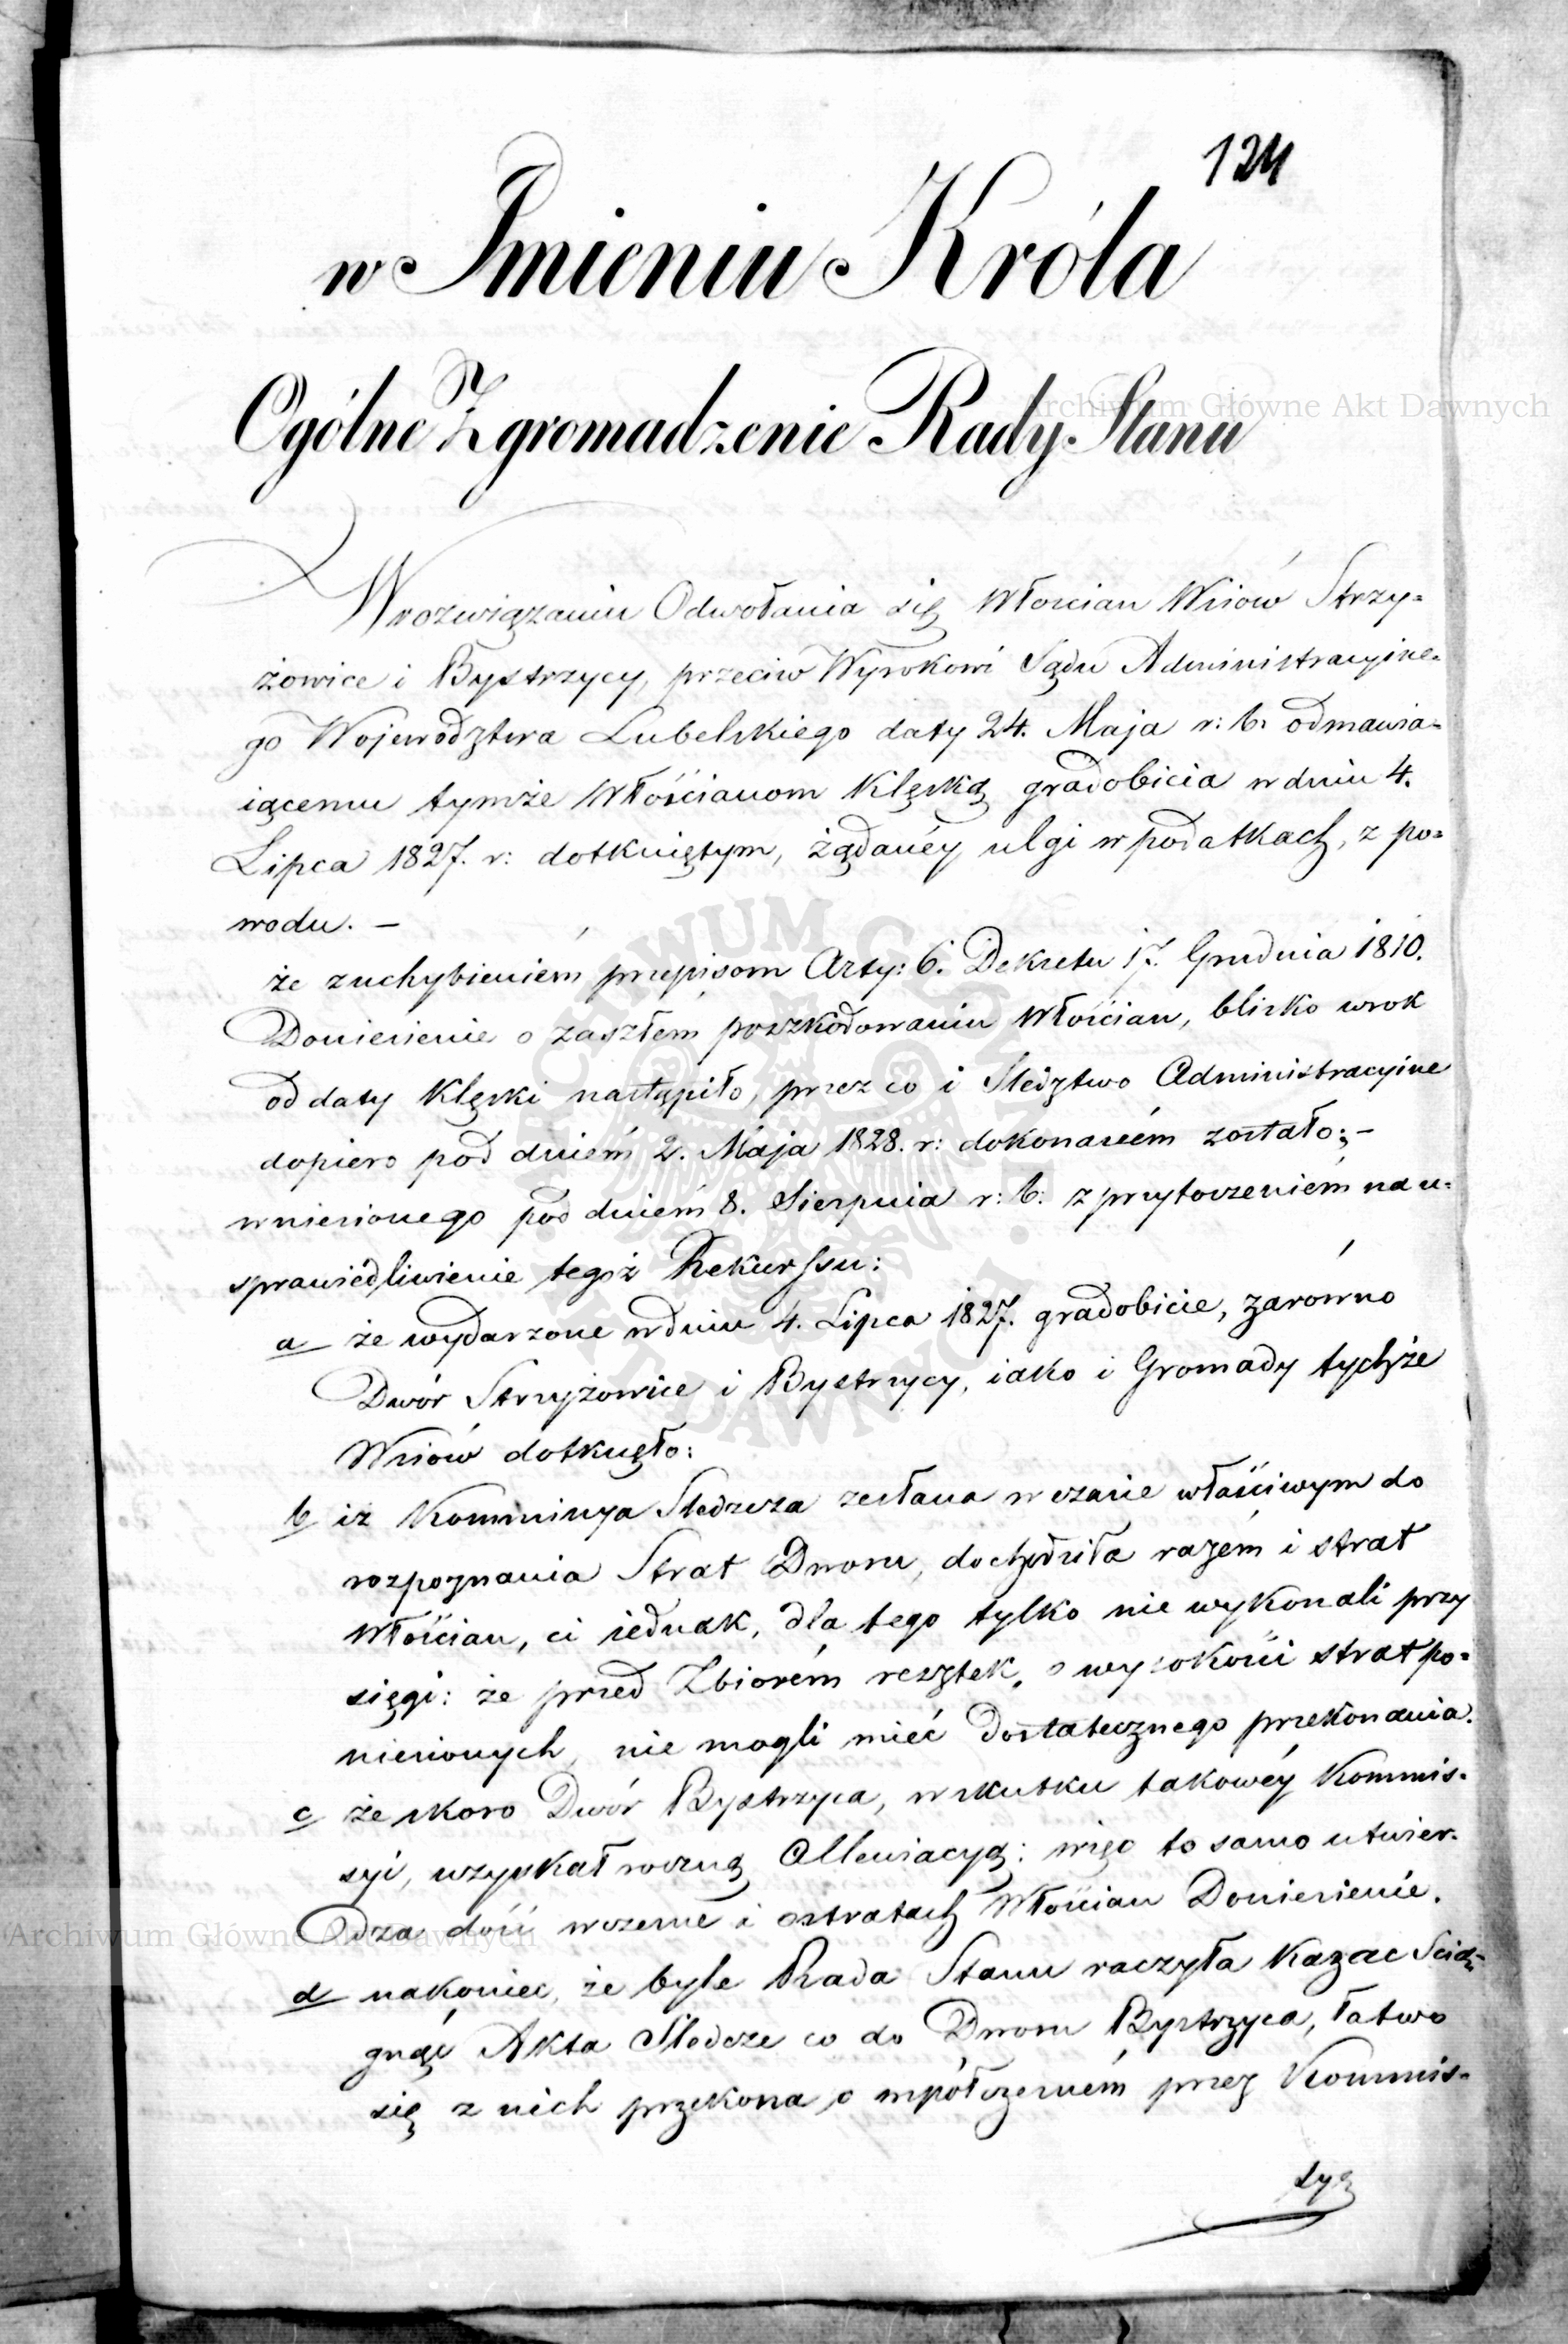 124
w Imieniu Króla
Ogólne Zgromadzenie Rady Stanu
W rozwiązaniu Odwołania się Włościan Wsiów Strzy=
żowice i Bystrzycy, przeciw Wyrokowi Sądu Administracyjne=
go Wojewodztwa Lubelskiego daty 24. Maja r: b: odmawia=
iącemu tymże Włościanom klęską gradobicia w dniu 4.
Lipca 1827. r: dotkniętym, żądanéy ulgi w podatkach, z po=
wodu. —
że zuchybieniém przepisom Arty: 6. Dekretu 17. Grudnia 1810.
Doniesienie o zaszłém poszkodowaniu Włościan, blisko w rok
od daty klęski nastąpiło, przez co i Sledztwo Administracyine
dopiero pod dniém 2. Maja 1828. r: dokonaném zostało; —
wniesionego pod dniém 8. Sierpnia r: b: z przytoczeniém na u=
sprawiedliwienie tegoż Rekurssu:
a że wydarzone w dniu 4. Lipca 1827. gradobicie, zarówno
Dwór Strzyżowice i Bystrzycy, iako i Gromady tychże
Wsiów dotknęło:
b iż Kommissya Sledcza zesłana w czasie właściwym do
rozpoznania Strat Dworu, dochodziła razém i strat
Włościan, ci iednak, dla tego tylko nie wykonali przy
sięgi: że przed Zbiorém resztek, o wysokości strat po=
niesionych, nie mogli mieć dostatecznego przekonania.
c że skoro Dwór Bystrzyca, w skutku takowéy Kommis=
syi, uzyskał roczną Allewiacyą; więc to samo utwier=
dza dość wczesne i o stratach Włościan Doniesienie.
d nakoniec, że byle Rada Stanu raczyła kazac Scią=
gnąć Akta Sledcze co do Dworu Bystrzyca, łatwo
się z nich przekona o wpółczesném przez Kommis=
syą
Archiwum Główne Akt Dawnych
Archiwum Główne Akt Dawnych
ARCHIWUM GŁÓWNE AKT DAWNYCH